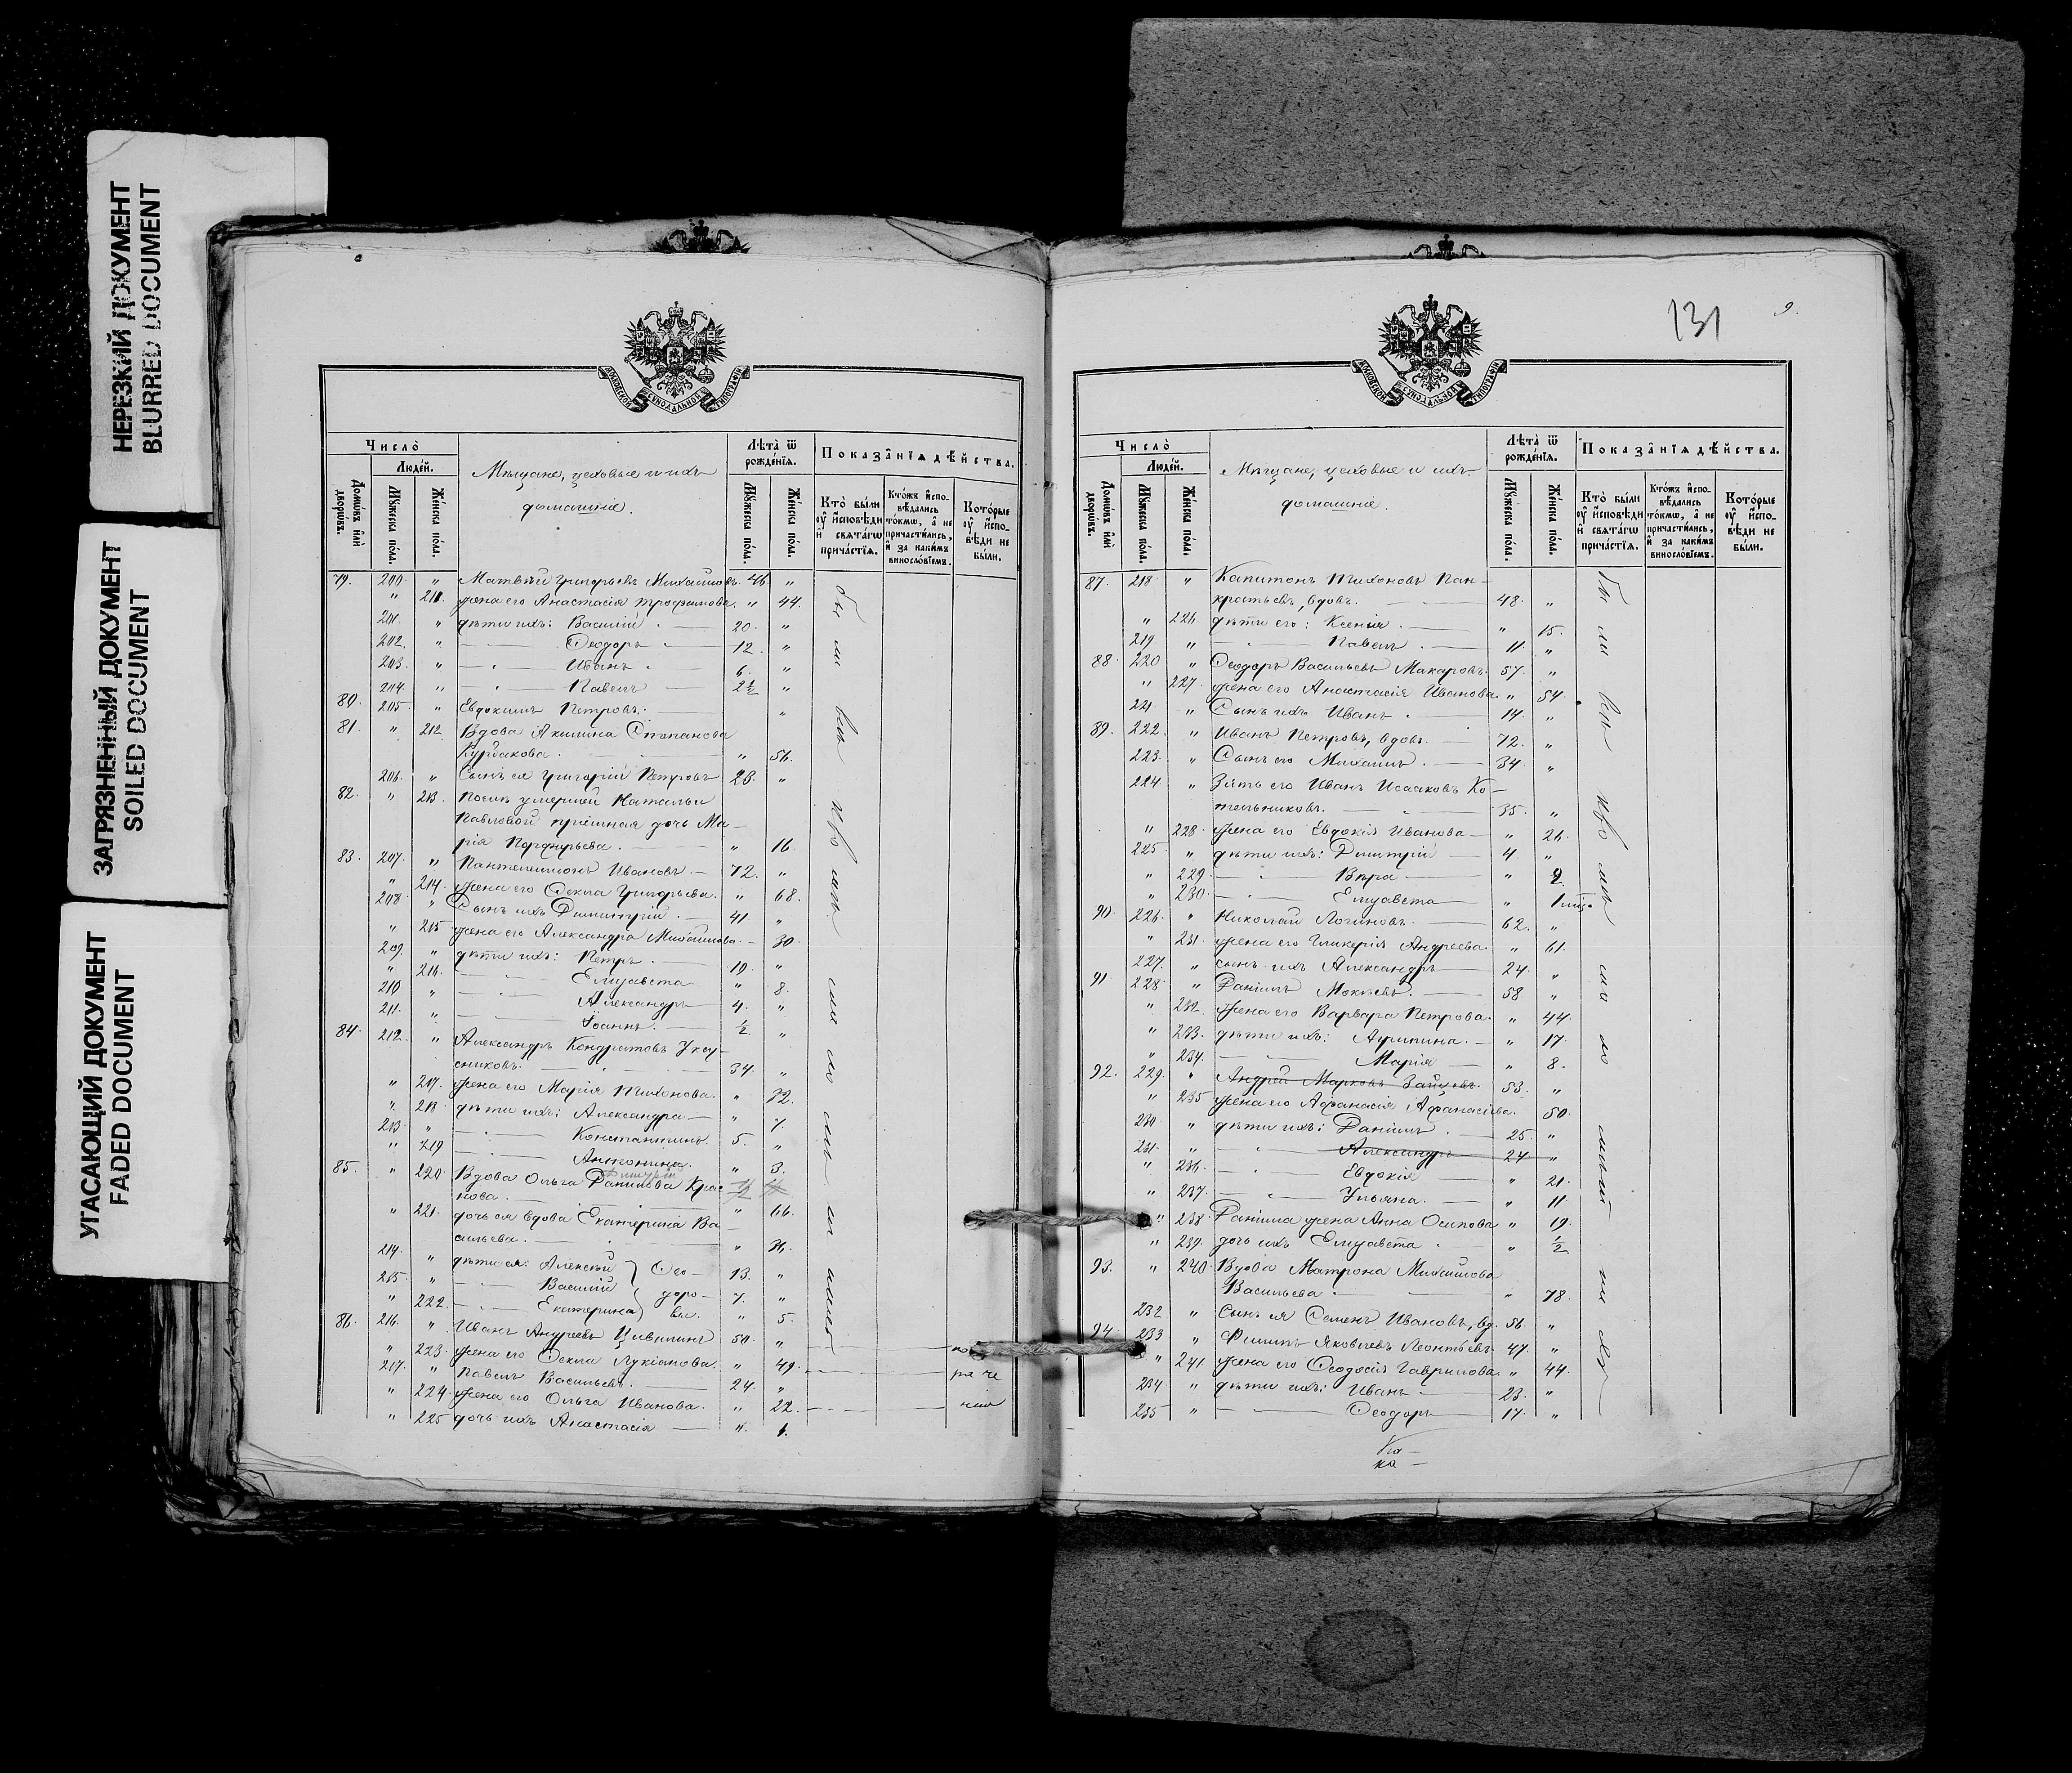 НЕРЕЗКИЙ ДОКУМЕНТ
BLURRED DOCUMENT
ЗАГРЯЗНЕННЫЙ ДОКУМЕНТ
SOILED DOCUMENT
УГАСАЮЩИЙ ДОКУМЕНТ
FADED DOCUMENT
МОСКОВСКОЙ СѴНОДАЛЬНОЙ ТИПОГРАФІИ
Число̀
Люде́й.
Домѡ́въ и҆лѝ дворѡ́въ.
Мꙋ́жеска по́ла.
Же́нска по́ла.
Мѣщане, цеховые и ихъ
домашніе.
Лѣта̀ ѿ рожде́нїѧ.
Мꙋ́жеска по́ла.
Же́нска по́ла.
Показа̑нїѧ дѣ́йства.
Кто̀ бы́ли оу҆ и҆сповѣ́ди и҆ свѧта́гѡ прича́стїѧ.
Кто́жъ и҆сповѣ́дались то́кмѡ, а҆ не причасти́лись, и҆ за каки́мъ винослѡ́вїемъ.
Кото́рые оу҆ и҆спо́вѣди не бы́ли.
79. 200. " Матвѣй Григорьевъ Михайловъ. 46 "
" 211. жена его Анастасія Трофимова. " 44.
201. " дѣти ихъ: Василій 20. "
202. " Ѳеодоръ 12. "
203. " Иванъ 6. "
204. " Павелъ 2½ "
80. 205. " Евдокимъ Петровъ. "
81. " 212. Вдова Акилина Степанова
Курбакова. " 56.
206. " Сынъ ея Григорій Петровъ 23. "
82. " 213. Послѣ умершей Натальи
Павловой пріемная дочь Ма-
рія Порфирьева. " 16
83. 207. " Пантелеимонъ Ивановъ. 72. "
" 214. жена его Ѳекла Григорьева. " 68.
208. " Сынъ ихъ Димитрій 41 "
" 215. жена его Александра Михайлова. 30.
209. " дѣти ихъ: Петръ 10. "
" 216. Елизавета " 8.
210 " Александръ 4. "
211. " Іоаннъ. ½ "
84. 212. " Александръ Кондратовъ
сниковъ. 34. "
" 217. жена его Марія Тихонова. " 32.
" 218. дѣти ихъ: Александра " 7.
213. " Константинъ. 5. "
" 219 Антонина. " 3.
85. " 220. Вдова Ольга Данилова Крас-
нова. " 66.
" 221. дочь ея вдова Екатерина Ва-
сильева.
214. " дѣти ея: Алексѣй } Ѳео- 13. "
215. " Василій } доро- 7. "
" 222. Екатерина } вы. " 5.
86. 216. " Иванъ Андреевъ 50. "
" 223. жена его Ѳекла Лукіанова. " 49.
217. " Павелъ Васильевъ. 24. "
" 224. жена его Ольга Иванова. " 22.
" 225 дочь ихъ Анастасія " 1.
131
9.
МОСКОВСКОЙ СѴНОДАЛЬНОЙ ТИПОГРАФІИ
Число̀
Люде́й.
Домѡ́въ и҆лѝ дворѡ́въ.
Мꙋ́жеска по́ла.
Же́нска по́ла.
Мѣщане, цеховые и ихъ
домашніе.
Лѣта̀ ѿ рожде́нїѧ.
Мꙋ́жеска по́ла.
Же́нска по́ла.
Показа̑нїѧ дѣ́йства.
Кто̀ бы́ли оу҆ и҆сповѣ́ди и҆ свѧта́гѡ прича́стїѧ.
Кто́жъ и҆сповѣ́дались то́кмѡ, а҆ не причасти́лись, и҆ за каки́мъ винослѡ́вїемъ.
Кото́рые оу҆ и҆спо́вѣди не бы́ли.
87. 218. " Капитонъ Тихоновъ Пан-
кратьевъ, вдовъ. 48. "
" 226. дѣти его: Ксенія " 15.
219 " Павелъ 11. "
88. 220 " Ѳеодоръ Васильевъ Макаровъ. 57. "
" 227. жена его Анастасія Иванова " 54.
221. " Сынъ ихъ Иванъ 14. "
89. 222. " Иванъ Петровъ, вдовъ. 72. "
223. " Сынъ его Михаилъ 34. "
224 " Зять его Иванъ Исааковъ Ко-
тельниковъ. 35. "
" 228. жена его Евдокія Иванова " 26.
225. " дѣти ихъ: Димитрій 4. "
" 229. Вѣра " 2.
" 230. Елизавета " 1
90. 226. " Николай Логиновъ. 62. "
" 231. жена его Гликерія Андреева. " 61.
227. " сынъ ихъ Александръ 24. "
91 228. " Даніилъ Мокѣевъ. 58 "
" 232. жена его Варвара Петрова. " 44.
" 233. дѣти ихъ: Агрипина. " 17.
" 234. Марія " 8.
92. 229. " Андрей Марковъ Зайцевъ. 53. "
" 235 жена его Афанасія Афанасіева. 50.
230 " дѣти ихъ: Даніилъ. 25. "
231. " Александръ 24 "
" 236. Евдокія " 21.
" 237. Ульяна. " 11
" 238. Даніила жена Анна Осипова " 19.
" 239. дочь ихъ Елизавета " ½
93. " 240. Вдова Матрона Михайлова
Васильева " 78.
232 " Сынъ ея Семенъ Ивановъ, вд. 56. "
94 233 " Филиппъ Яковлевъ Леонтьевъ. 47. "
" 241 жена его Ѳеодосія Гаврилова. " 44.
234. " дѣти ихъ: Иванъ 23. "
235 " Ѳеодоръ 17. "